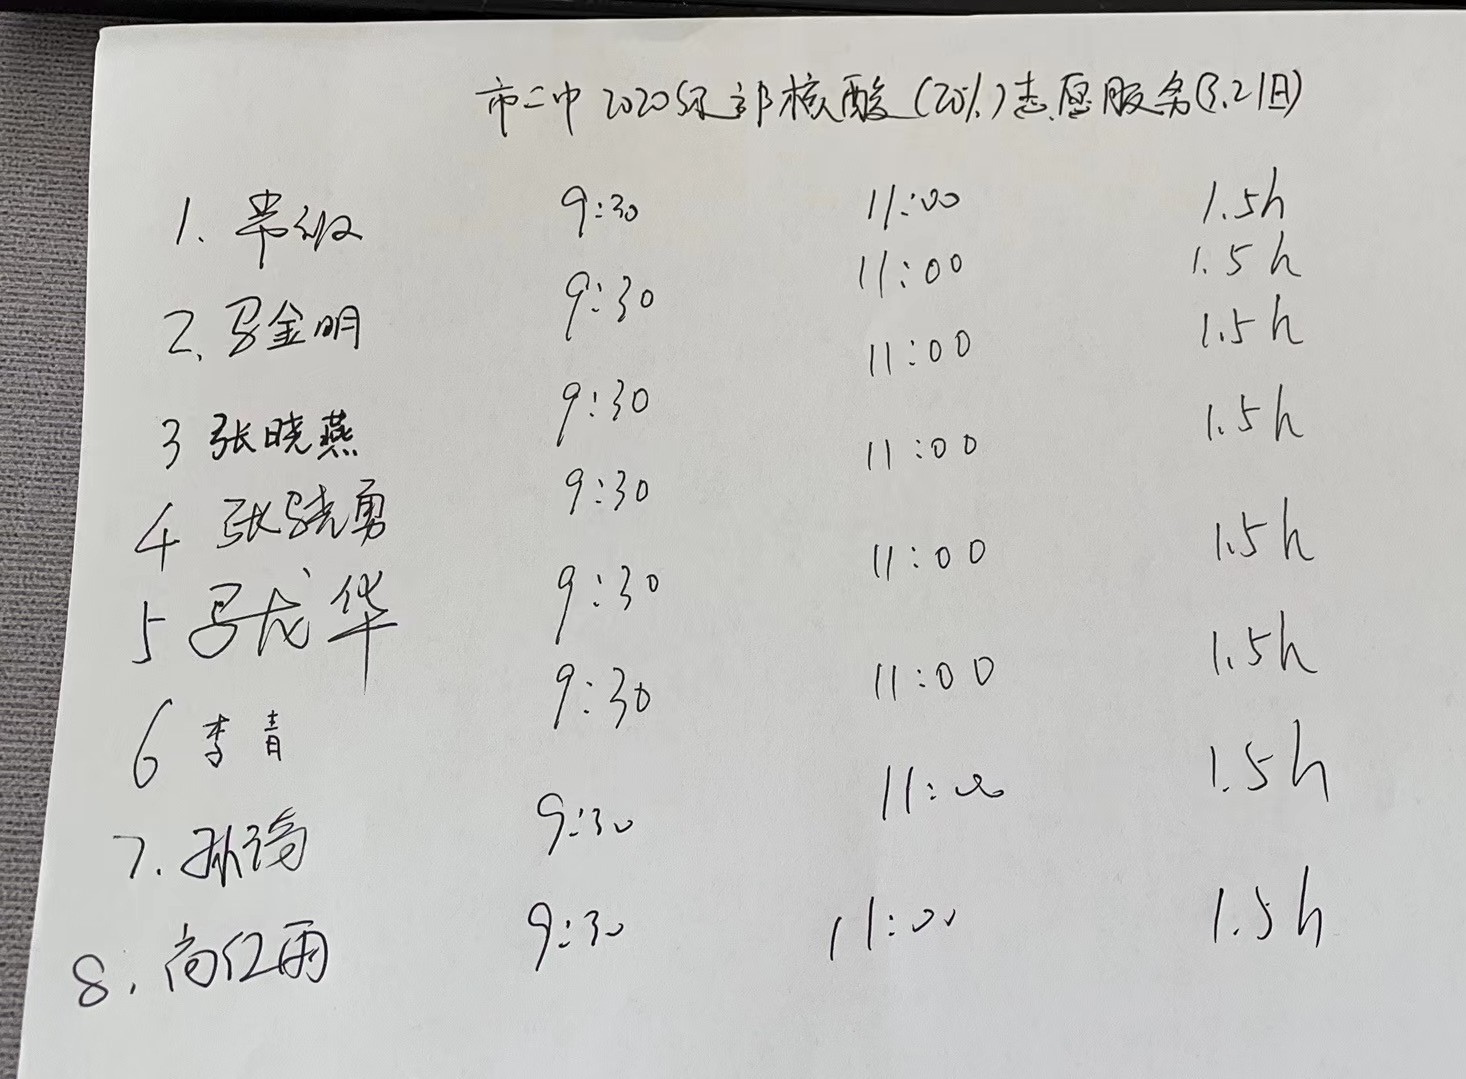 市二中2020级部核酸(20%)志愿服务(3.21日)
1. 9:30 11:00 1.5h
2. 马金明 9:30 11:00 1.5h
3 张晓燕 9:30 11:00 1.5h
4 张晓勇 9:30 11:00 1.5h
5 马龙华 9:30 11:00 1.5h
6 李青 9:30 11:00 1.5h
7. 孙 9:30 11:00 1.5h
8. 尚红雨 9:30 11:00 1.5h